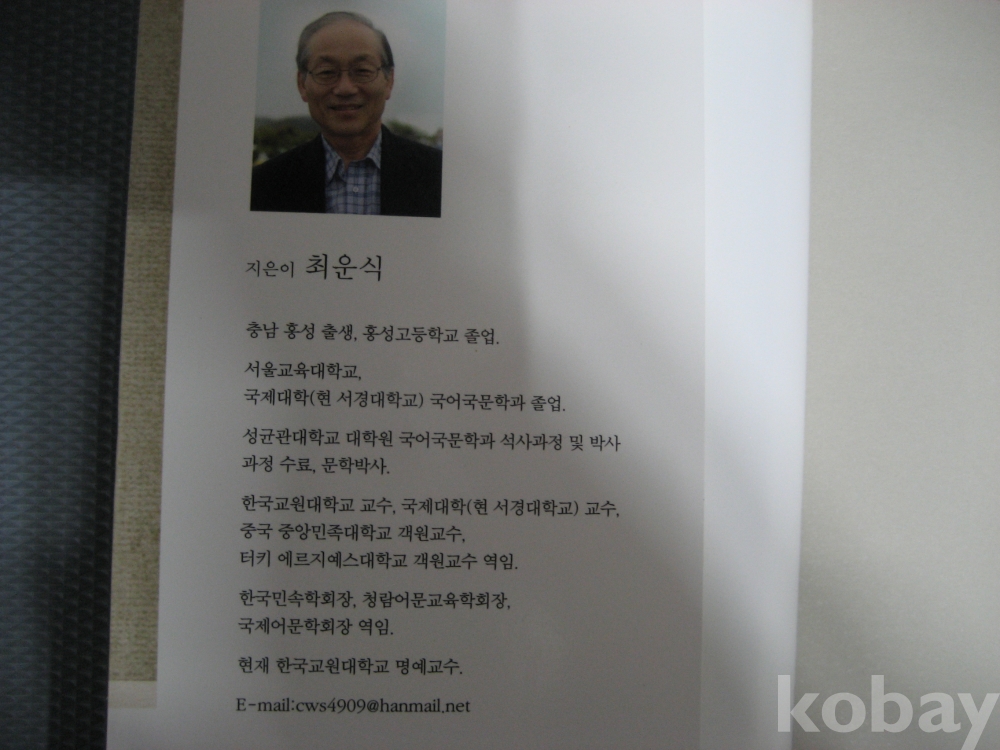 지은이 최운식
충남 홍성 출생, 홍성고등학교 졸업.
서울교육대학교,
국제대학(현 서경대학교) 국어국문학과 졸업.
성균관대학교 대학원 국어국문학과 석사과정 및 박사
과정 수료, 문학박사.
한국교원대학교 교수, 국제대학(현 서경대학교) 교수,
중국 중앙민족대학교 객원교수,
터키 에르지예스대학교 객원교수 역임.
한국민속학회장, 청람어문교육학회장,
국제어문학회장 역임.
현재 한국교원대학교 명예교수.
E-mail:cws4909@hanmail.net
kobay